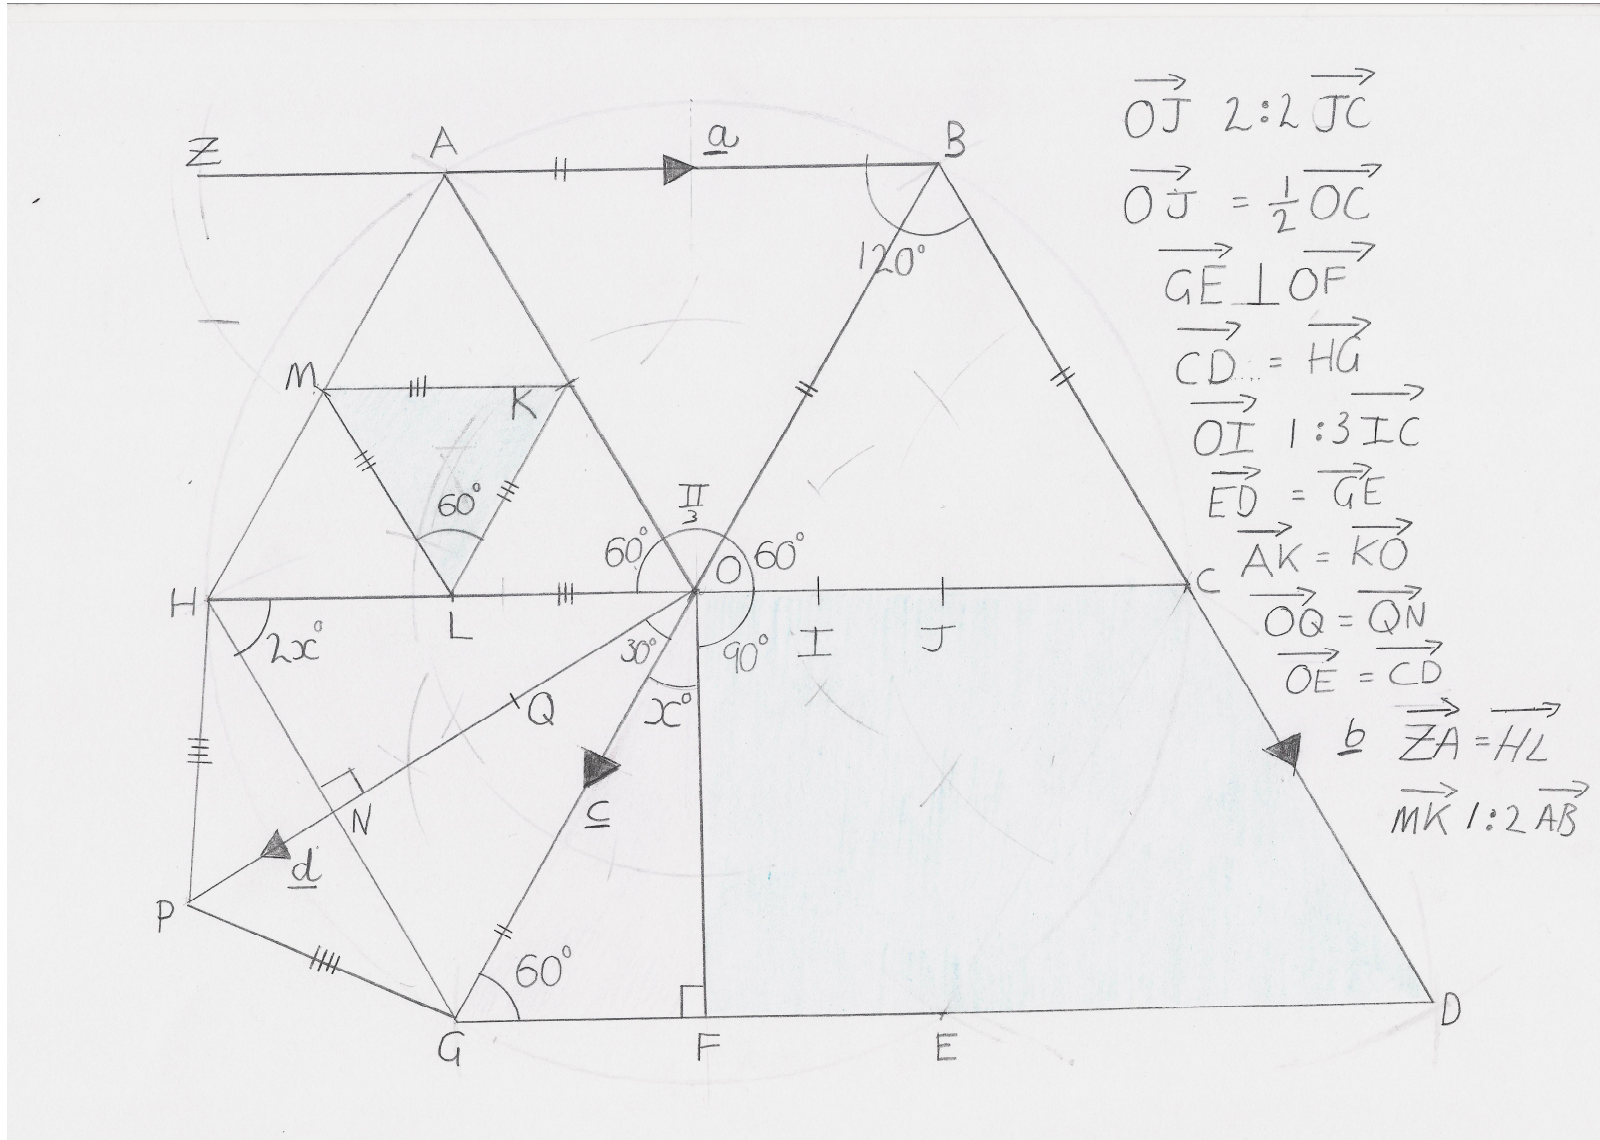 Z
A
a
B
120°
M
K
60°
π/3
60°
O
60°
H
L
I
J
C
2x°
30°
90°
Q
x°
b
c
N
d
P
60°
G
F
E
D
OJ 2:2 JC
OJ = 1/2 OC
GE ⊥ OF
CD = HG
OI 1:3 IC
ED = GE
AK = KO
OQ = QN
OE = CD
ZA = HL
MK 1:2 AB